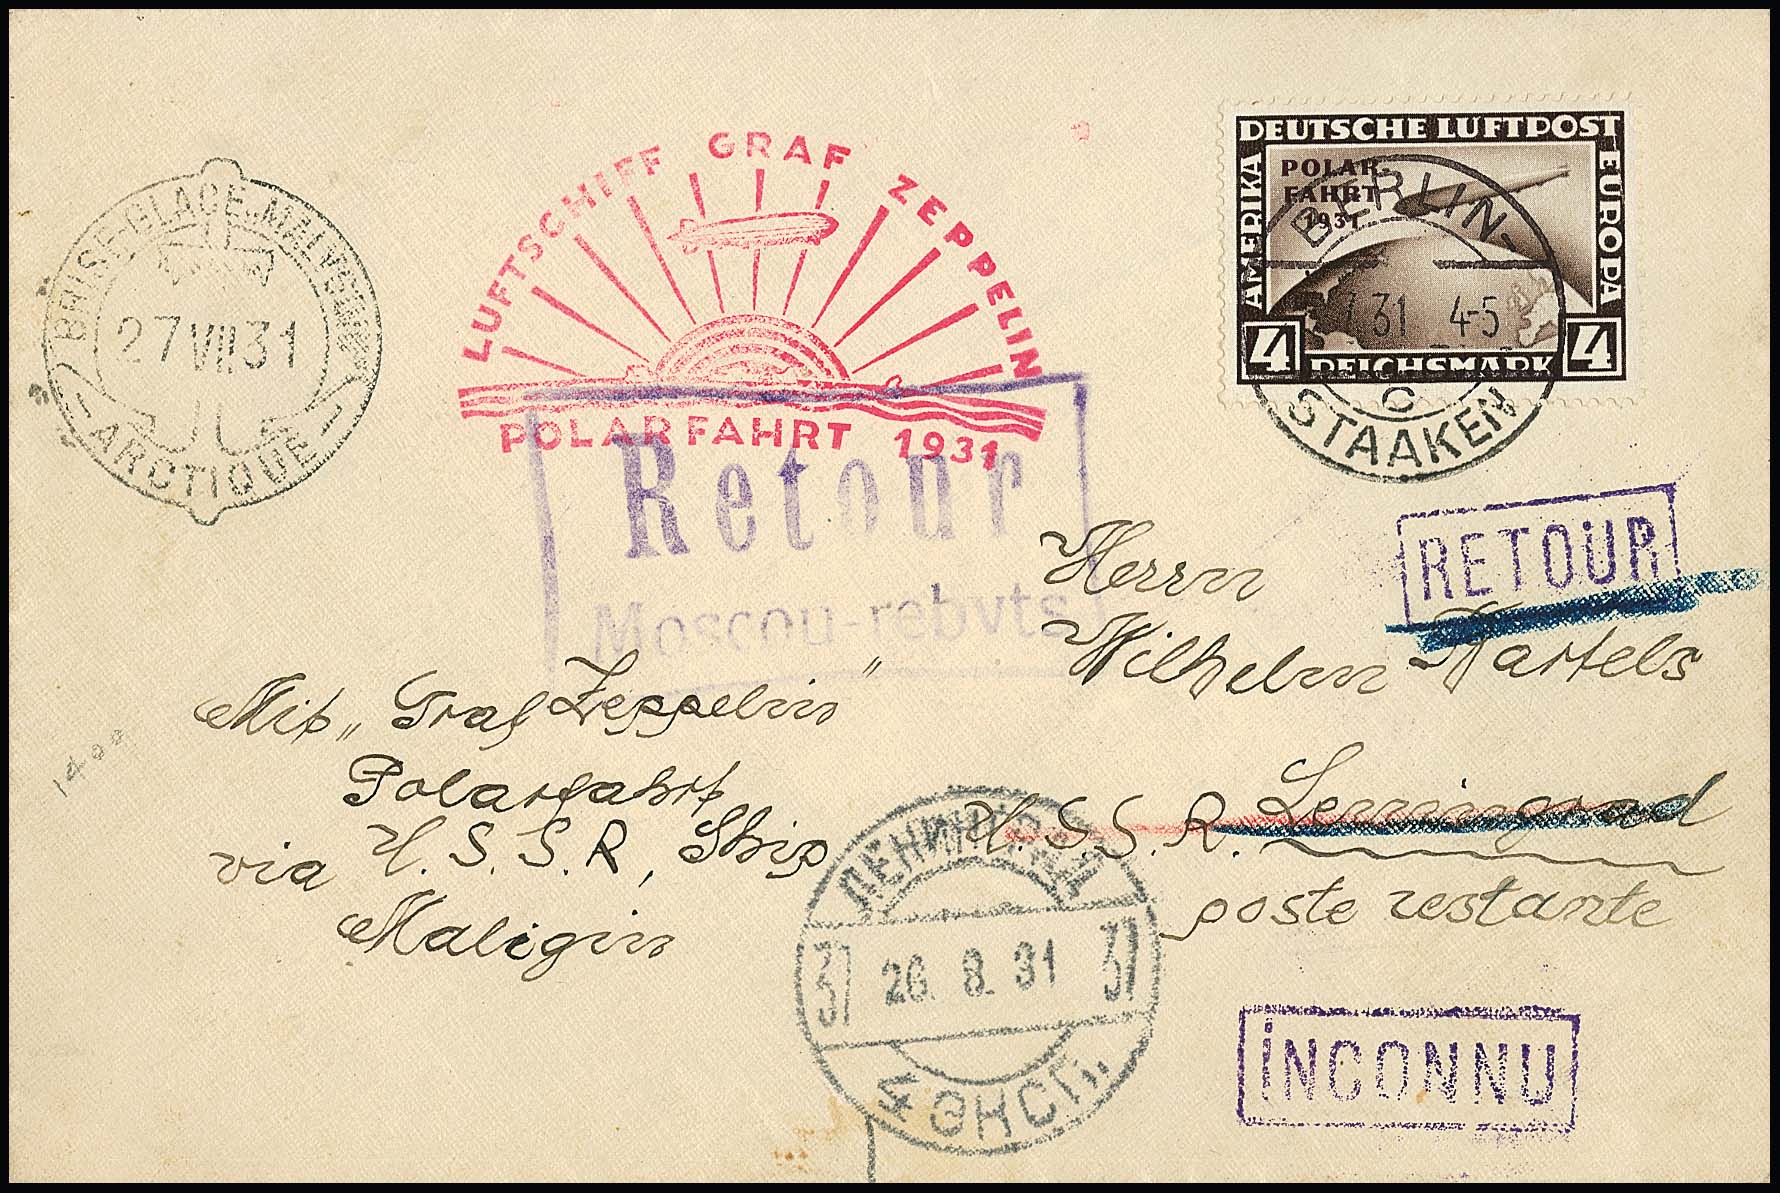 BRISE-GLACE „MALYGUIN"
27 VII 31
ARCTIQUE
LUFTSCHIFF GRAF ZEPPELIN
POLARFAHRT 1931
DEUTSCHE LUFTPOST
AMERIKA
EUROPA
POLAR-
FAHRT
1931
4 REICHSMARK 4
BERLIN-
31 4-5
C
STAAKEN
Retour
Moscou-rebvts
RETOUR
Herrn
Wilhelm Kartels
U.S.S.R. Leningrad
poste restante
Mit „Graf Zeppelin"
Polarfahrt
via U.S.S.R, Ship
Maligin
1400
ЛЕНИНГРАД
37 26. 8. 31 37
4 ЭКСП.
INCONNU